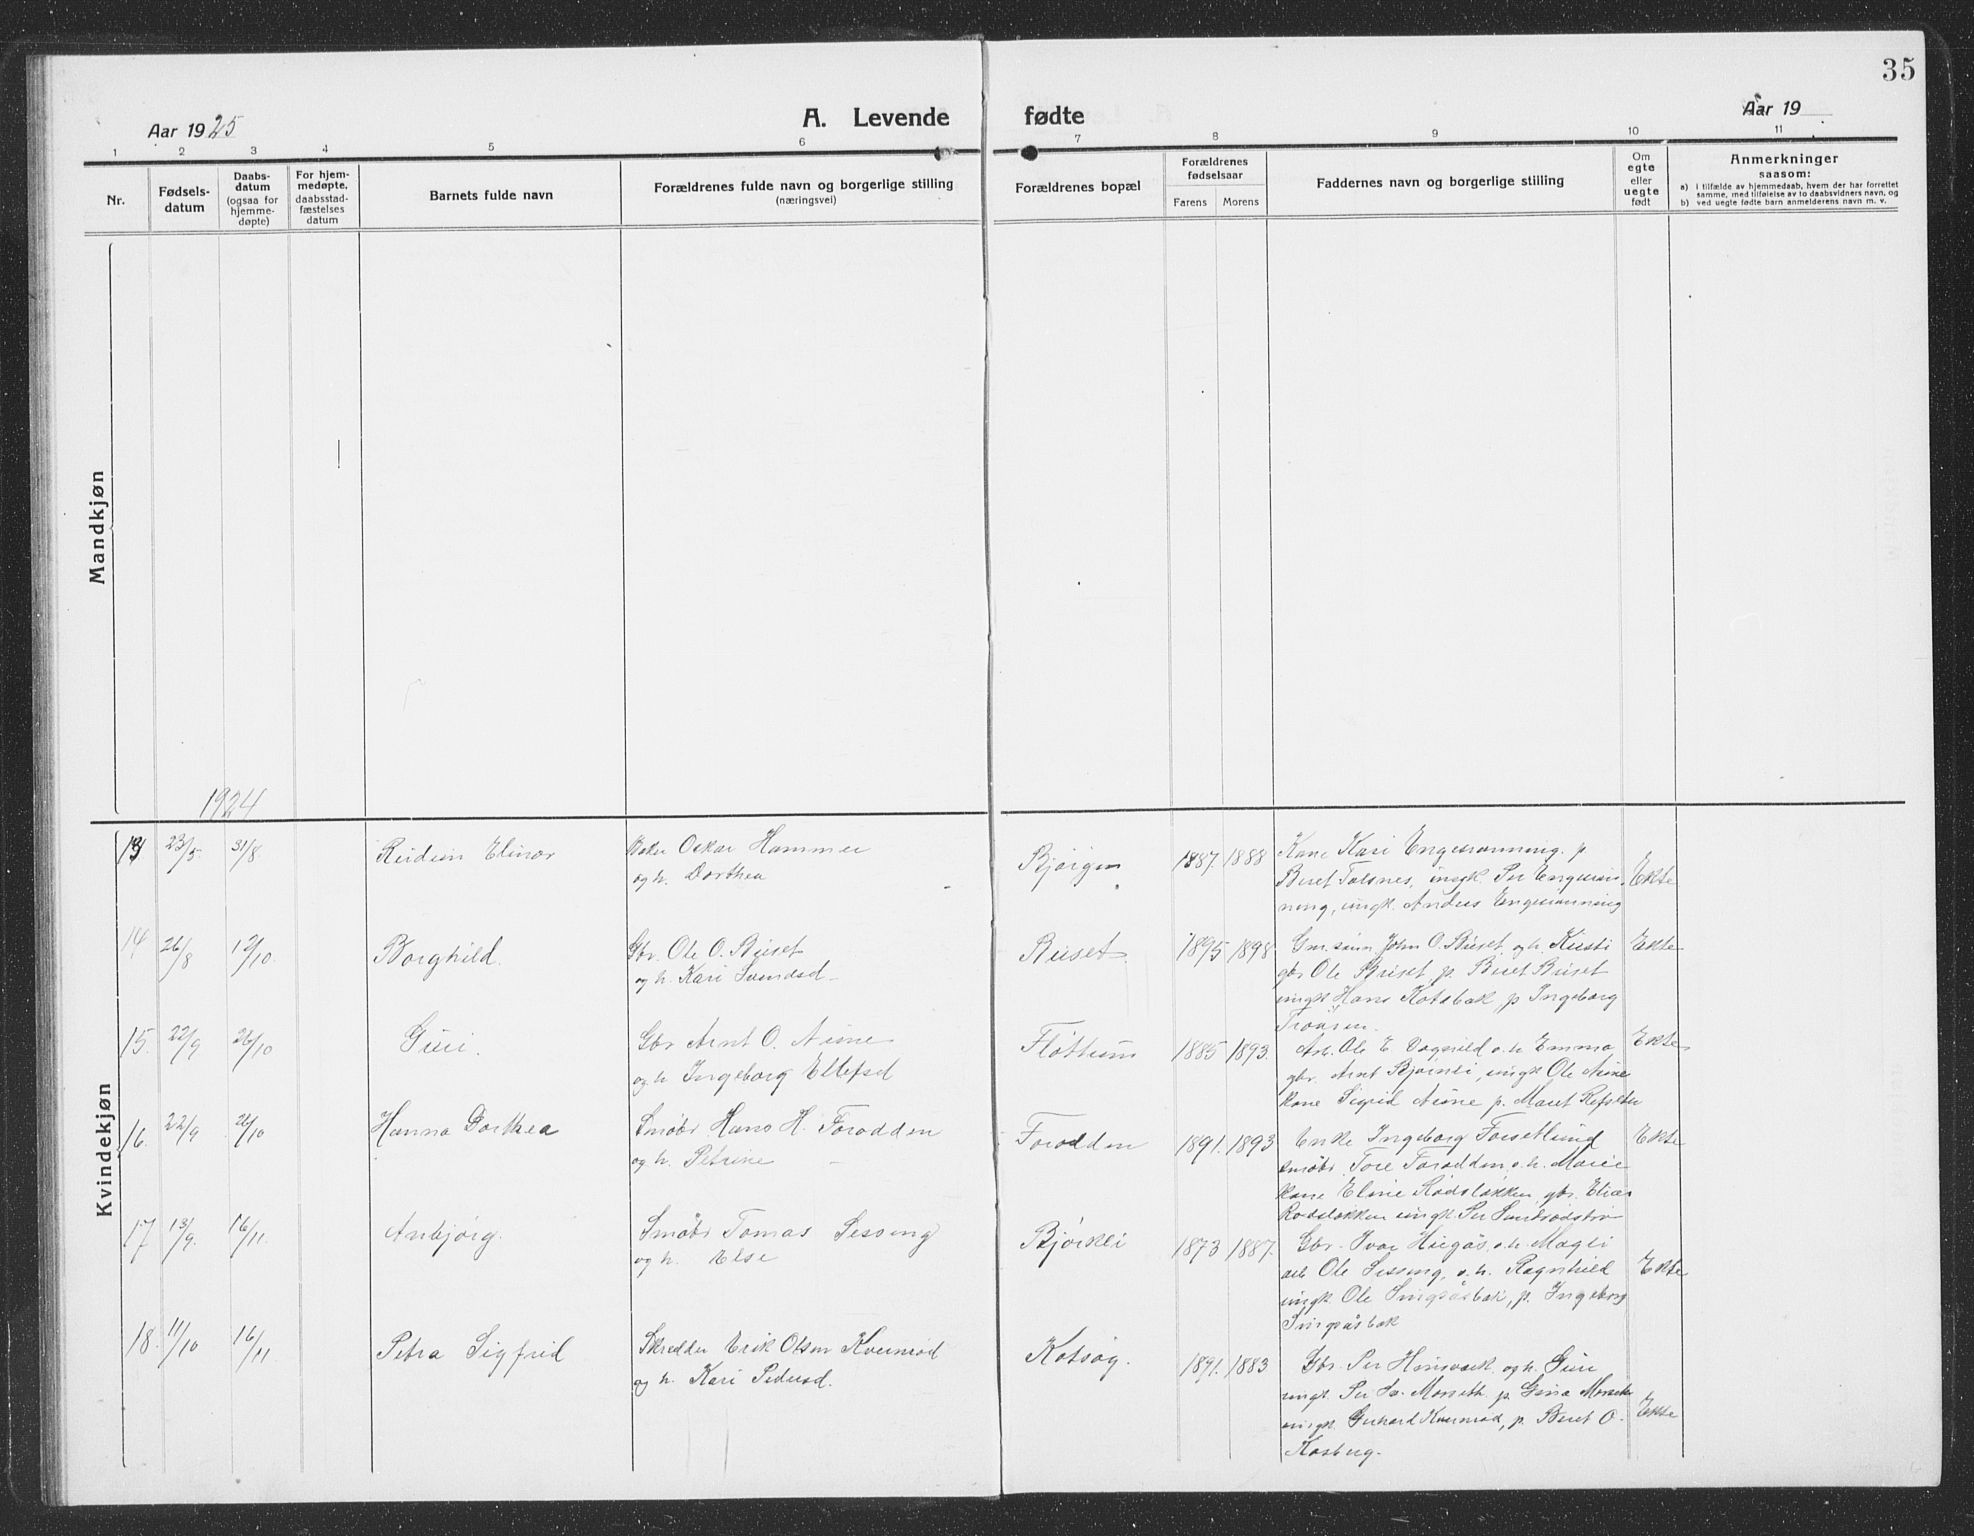 35
Aar 1925
A. Levende fødte
Aar 19
1 2 3 4 5 6 7 8 9 10 11
Nr.
Fødsels-
datum
Daabs-
datum
(ogsaa for
hjemme-
døpte)
For hjem-
medøpte,
daabsstad-
fæstelses
datum
Barnets fulde navn
Forældrenes fulde navn og borgerlige stilling
(næringsvei)
Forældrenes bopæl
Forældrenes
fødselsaar
Farens Morens
Faddernes navn og borgerlige stilling
Om
egte
eller
uegte
født
Anmerkninger
saasom:
a) i tilfælde av hjemmedaab, hvem der har forrettet
samme, med tilføielse av to daabsvidners navn, og
b) ved uegte fødte barn anmelderens navn m. v.
Mandkjøn
1924
Kvindekjøn
13 23/5 31/8
Reidun Elinor
Baker Oskar Hammer
og h. Dorthea
Bjørgen
1887. 1888
Kone Kari Engesronning. p
Beret Talsnes, ungk. Per Engesrøn-
ning, ungk. Anders Engesrønning
Ekte
14 26/8 12/10.
Borghild.
Gbr. Ole O. Buset
og h. Kari Svendsd
Buset.
1895 1898
John O. Buset o.h. Kirsti
gbr Ole Buset, p. Beret Buset
ungk Hans Kotsbak, p Ingeborg
Ekte
15. 22/9 26/10
Guri.
Gbr Arnt O. Aune
og h Ingeborg Ellefsd
Fløttum
1885 1893.
Arb. Ole E. Vagnild o.h Emma
gbr. Arnt Bjørnli, ungk Ole Aune
kone Sigrid Aune p. Maret Refseter
Ekte
16. 22/9 26/10
Hanna Dorthea
Småbr. Hans H. Forodden
og h. Petrine
Forodden
1891. 1893
Enke Ingeborg Forsetlund
småbr. Tore Forodden o.h. Marie
kone Eline Rødsløkken, gbr. Elias
Rødsløkken ungk. Per
Ekte
17 13/9. 16/11.
Anbjørg.
Småbr Tomas Sessing
og h. Else
Bjørkli
1873 1887.
Gbr. Ivar Haugås, o.h. Magli
arb Ole Sessing, o. h. Ragnhild
ungk. Ole Singsåsbak, p. Ingeborg
Singsåsbak
Ekte
18. 11/10 16/11
Petra Sigfrid
Skredder Erik Olsen Kvernrød
og h. Kari Pedersd.
Kotsøg.
1891. 1883
Gbr. Per og h. Guri
ungk. Per Morseth. p. Gina
ungk. Gerhard Kvernrød, p. Beret O.
Kosberg.
Ekte